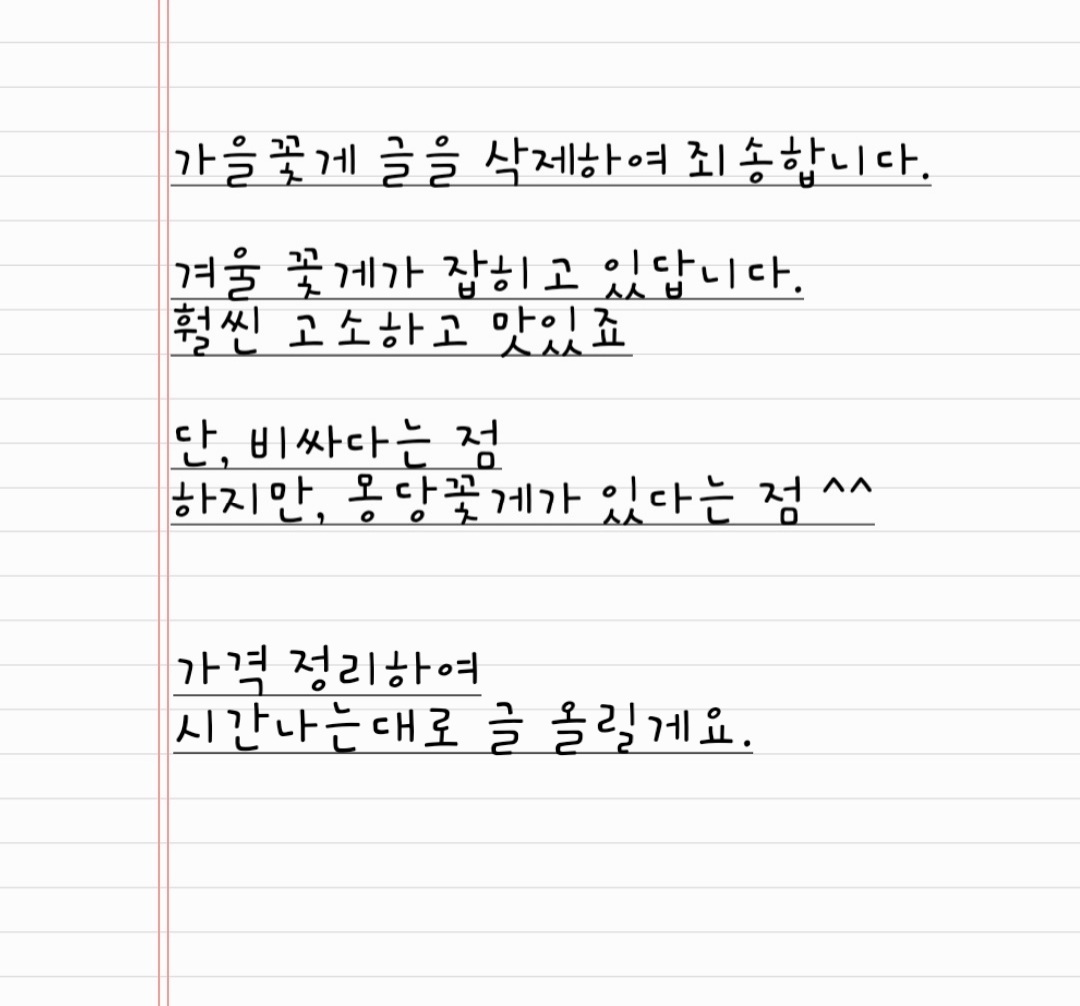 가을꽃게 글을 삭제하여 죄송합니다.
겨울 꽃게가 잡히고 있답니다.
훨씬 고소하고 맛있죠
단, 비싸다는 점
하지만, 몽당꽃게가 있다는 점 ^^
가격 정리하여
시간나는대로 글 올릴게요.